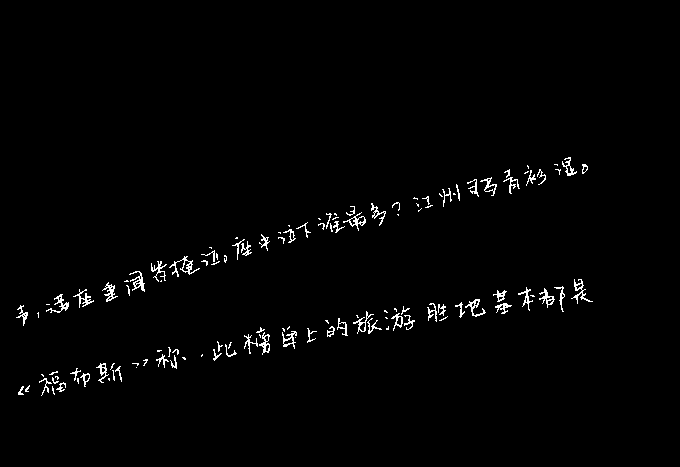 声，满座重闻皆掩泣。座中泣下谁最多？江州司马青衫湿。
《福布斯》称，此榜单上的旅游胜地基本都是